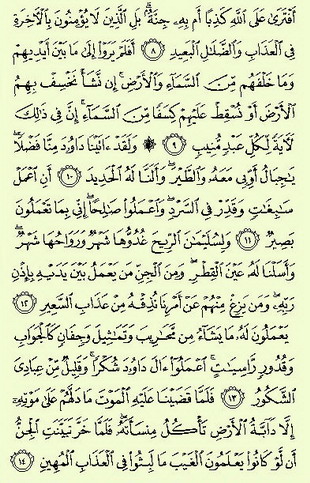 أَفْتَرَىٰ عَلَى ٱللَّهِ كَذِبًا أَم بِهِۦ جِنَّةٌۢ ۗ بَلِ ٱلَّذِينَ لَا يُؤْمِنُونَ بِٱلْـَٔاخِرَةِ
فِى ٱلْعَذَابِ وَٱلضَّلَـٰلِ ٱلْبَعِيدِ ﴿٨﴾ أَفَلَمْ يَرَوْا۟ إِلَىٰ مَا بَيْنَ أَيْدِيهِمْ
وَمَا خَلْفَهُم مِّنَ ٱلسَّمَآءِ وَٱلْأَرْضِ ۚ إِن نَّشَأْ نَخْسِفْ بِهِمُ
ٱلْأَرْضَ أَوْ نُسْقِطْ عَلَيْهِمْ كِسَفًا مِّنَ ٱلسَّمَآءِ ۚ إِنَّ فِى ذَٰلِكَ
لَـَٔايَةً لِّكُلِّ عَبْدٍ مُّنِيبٍ ﴿٩﴾ ۞ وَلَقَدْ ءَاتَيْنَا دَاوُۥدَ مِنَّا فَضْلًا ۖ
يَـٰجِبَالُ أَوِّبِى مَعَهُۥ وَٱلطَّيْرَ ۖ وَأَلَنَّا لَهُ ٱلْحَدِيدَ ﴿١٠﴾ أَنِ ٱعْمَلْ
سَـٰبِغَـٰتٍ وَقَدِّرْ فِى ٱلسَّرْدِ ۖ وَٱعْمَلُوا۟ صَـٰلِحًا ۖ إِنِّى بِمَا تَعْمَلُونَ
بَصِيرٌ ﴿١١﴾ وَلِسُلَيْمَـٰنَ ٱلرِّيحَ غُدُوُّهَا شَهْرٌ وَرَوَاحُهَا شَهْرٌ ۖ
وَأَسَلْنَا لَهُۥ عَيْنَ ٱلْقِطْرِ ۖ وَمِنَ ٱلْجِنِّ مَن يَعْمَلُ بَيْنَ يَدَيْهِ بِإِذْنِ
رَبِّهِۦ ۖ وَمَن يَزِغْ مِنْهُمْ عَنْ أَمْرِنَا نُذِقْهُ مِنْ عَذَابِ ٱلسَّعِيرِ ﴿١٢﴾
يَعْمَلُونَ لَهُۥ مَا يَشَآءُ مِن مَّحَـٰرِيبَ وَتَمَـٰثِيلَ وَجِفَانٍ كَٱلْجَوَابِ
وَقُدُورٍ رَّاسِيَـٰتٍ ۚ ٱعْمَلُوٓا۟ ءَالَ دَاوُۥدَ شُكْرًا ۚ وَقَلِيلٌ مِّنْ عِبَادِىَ
ٱلشَّكُورُ ﴿١٣﴾ فَلَمَّا قَضَيْنَا عَلَيْهِ ٱلْمَوْتَ مَا دَلَّهُمْ عَلَىٰ مَوْتِهِۦٓ
إِلَّا دَآبَّةُ ٱلْأَرْضِ تَأْكُلُ مِنسَأَتَهُۥ ۖ فَلَمَّا خَرَّ تَبَيَّنَتِ ٱلْجِنُّ
أَن لَّوْ كَانُوا۟ يَعْلَمُونَ ٱلْغَيْبَ مَا لَبِثُوا۟ فِى ٱلْعَذَابِ ٱلْمُهِينِ ﴿١٤﴾